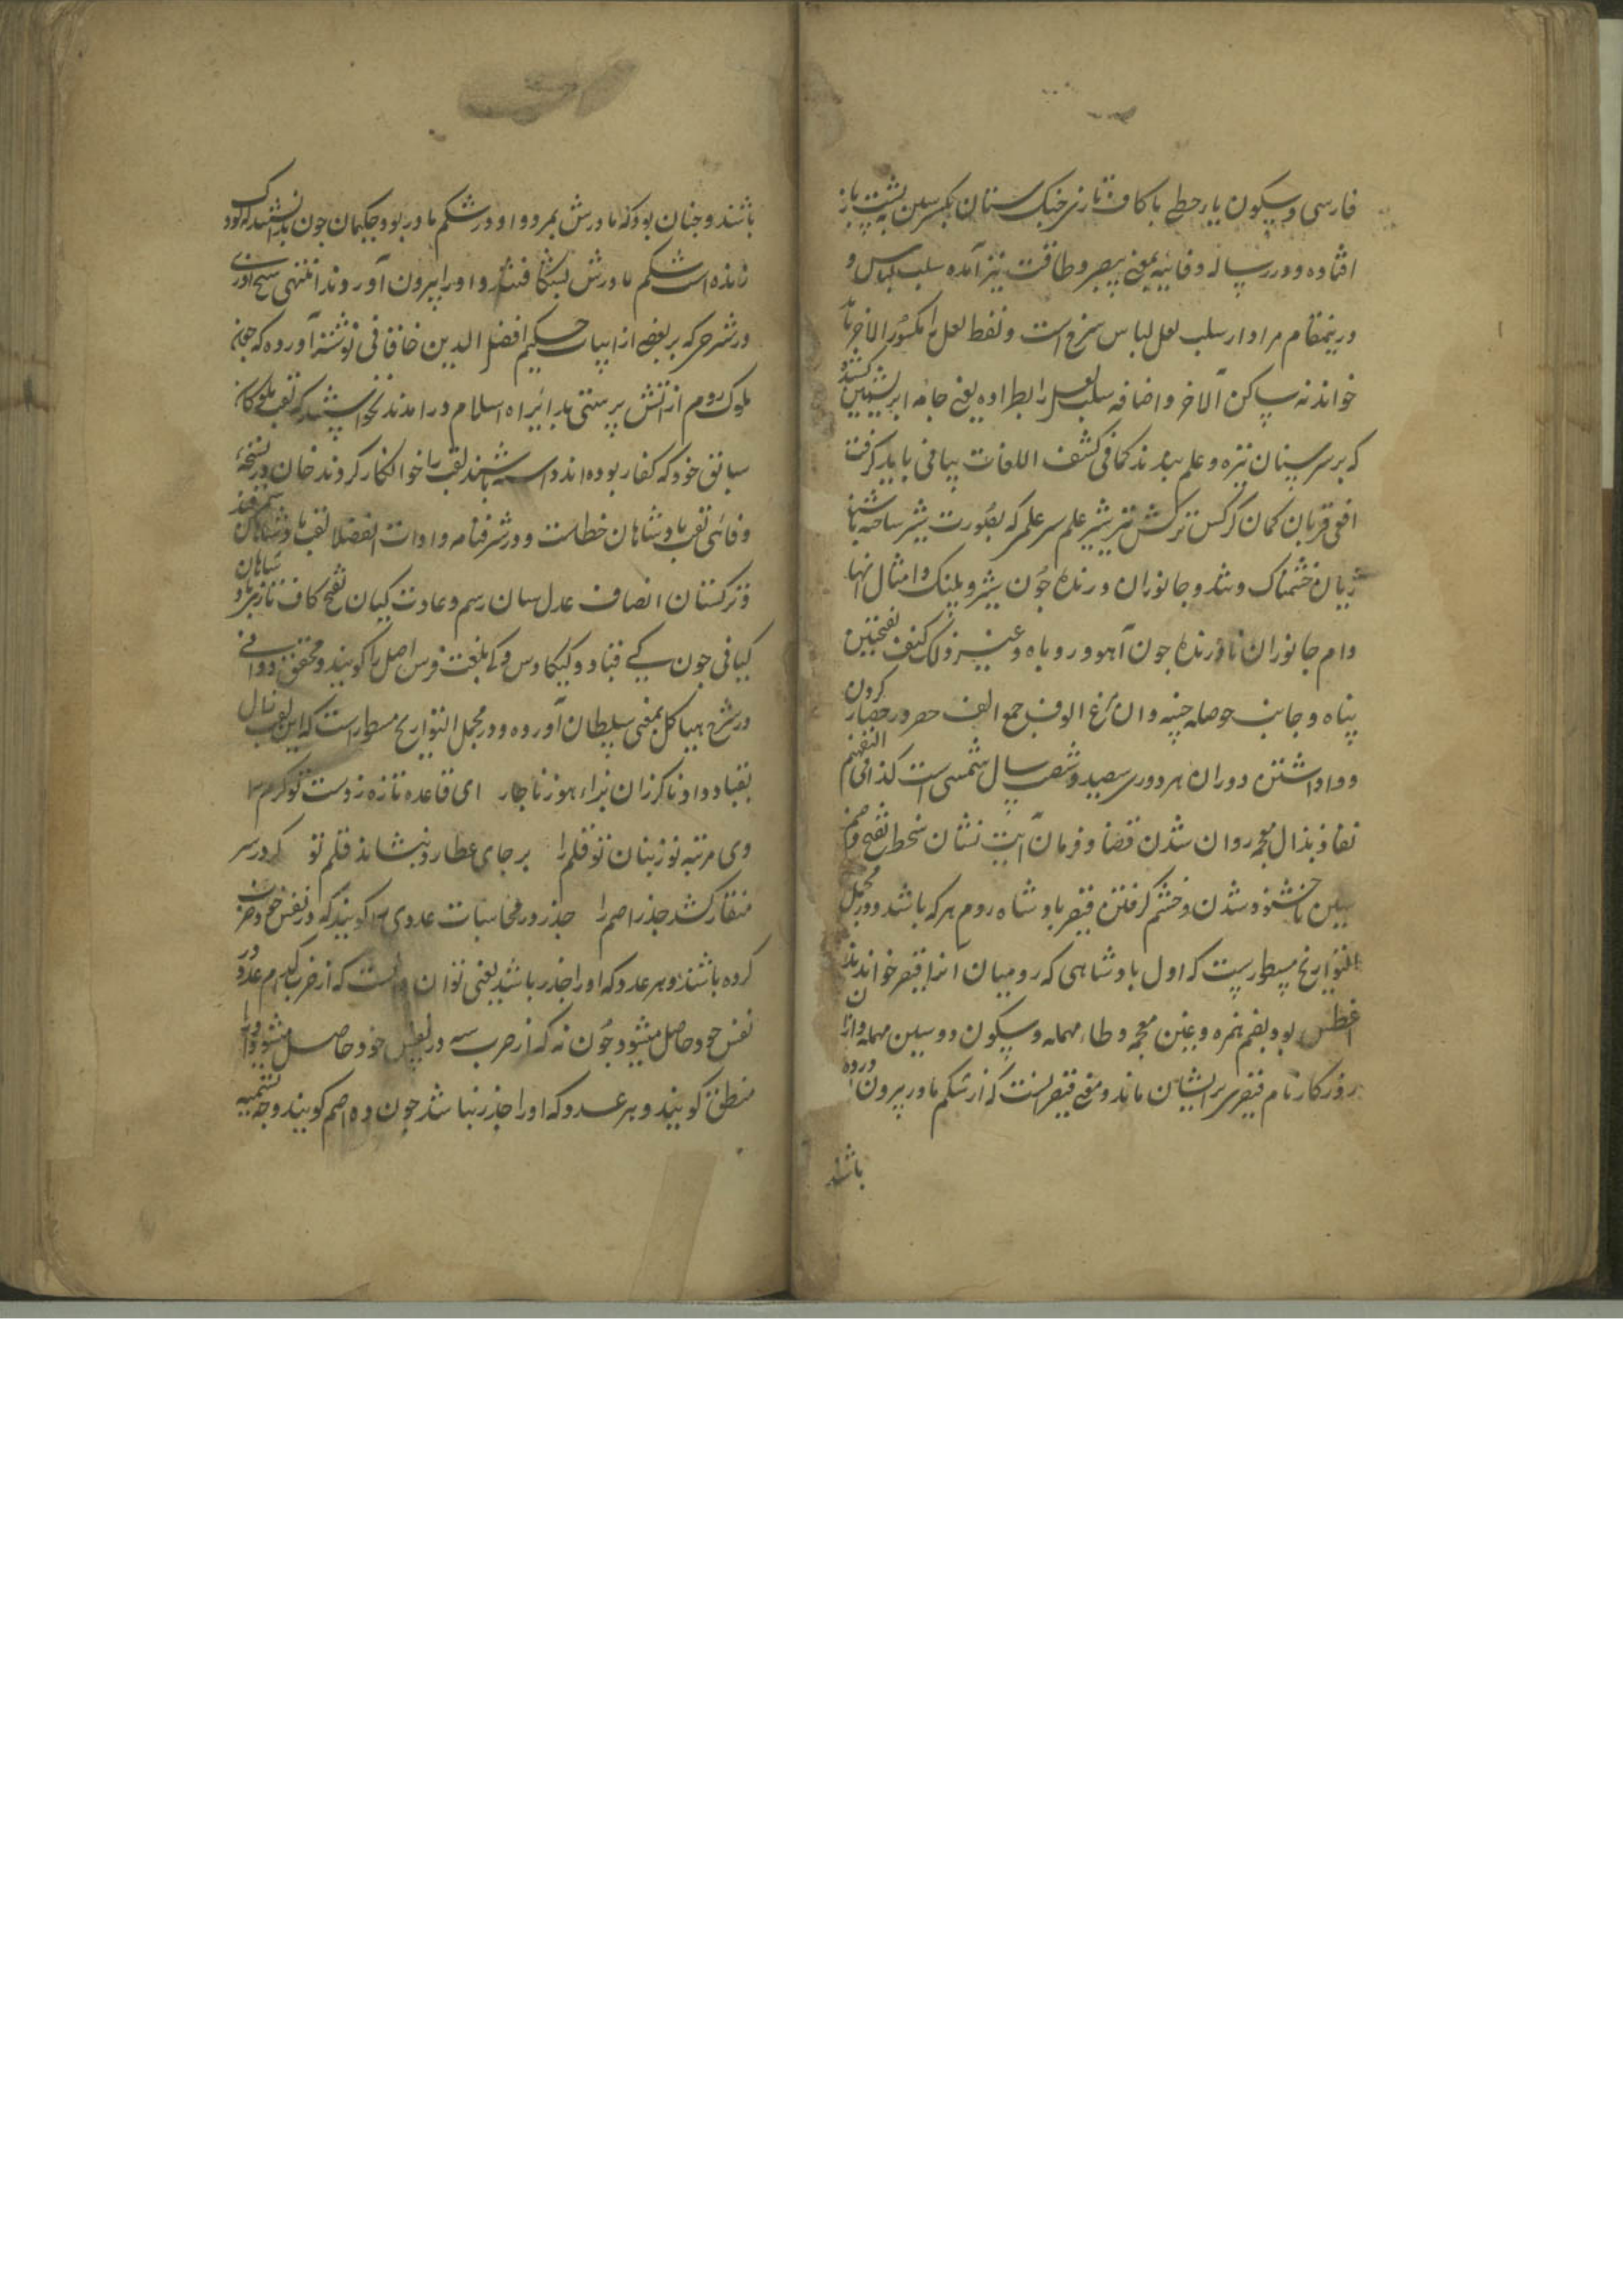 فارسی و سکون یار حطی با کاف تازی خنک ستان بکسر سین به پشت باز
افتاده و در رساله وفائیه بمعنی بیصبر و طاقت نیز آمده سلب لباس و
درینمقام مراد از سلب لعل لباس سرخ است و لفظ لعل را مکسور الاخر باید
خواند نه ساکن الاخر و اضافه سلب لعل رابط داده یعنی جامه ابریشمین کشند
که بر سر سنان نیزه و علم بندند کما فی کشف اللغات بیا فی باید کرفت
افعی قربان کمان کرکس ترکش تیر شیر علم سر علم که بصورت شیر ساخته باشند
ژیان خشمناک و تند و جانوران درنده جون شیر و پلنک و امثال انها
دام جانوران نادرنده جون آهو و روباه و غیر ذلک کنف بفتحتین
پناه و جانب حوصله چینه دان مرغ الوف جمع الف حصر در حصار کردن
و واداشتن دوران هر دوری سیصد و شصت سال شمسی است کذا فی التفهیم
نفاذ بذال معجمه روان شدن قضا و فرمان آیت نشان سخط بفتح و ضم
سین ناخشنود شدن و خشم کرفتن قیصر بادشاه روم هر که باشد و در مجمل
التواریخ مسطورست که اول بادشاهی که رومیان انرا قیصر خواندند
اغطس بود بضم همزه و غین معجمه و طاء مهمله و سکون دو سین مهمله و ازان
روزکار نام قیصری برایشان ماند و معنی قیصر انست که از شکم مادر بیرون اورده
باشند
باشند و جنان بود که مادرش بمرد و او در شکم مادر بود حکیمان جون بدانستند که کودک
زنده است شکم مادرش بشکافتند و او را بیرون آوردند انتهی شیخ اذری
در شرحی که بر بعضی از ابیات حکیم افضل الدین خاقانی نوشته آورده که جون
ملوک روم از آتش پرستی براه اسلام درامدند نخواستند که لقب ملوکان
سابق خود که کفار بوده اند داشته باشند لقب را خوانکار کردند خان در نسخه
وفائی لقب بادشاهان خطاست و در شرفنامه و ادات الفضلا لقب بادشاهان سمرقند
و ترکستان انصاف عدل سان رسم و عادت کیان بفتح کاف تازی بادشاهان
کیانی جون کی قباد و کیکاوس و کی بلغت فرس اصل را کویند و محقق دوانی
در شرح هیاکل بمعنی سلطان آورده و در مجمل التواریخ مسطورست که این لقب زال
بقباد داد ناکزران ناچار ای قاعده تازه ز دست تو کرم را
وی مرتبه نو ز بنان تو قلم را بر جای عطارد بنشاند قلم تو کر در سر
منقار کشد جذر اصم را جذر در محاسبات عددی را کویند که در نفس خود ضرب
کرده باشند و هر عدد که او را جذر باشد یعنی توان دانست که از ضرب کدام عدد در
نفس خود حاصل میشود جون نه که از ضرب سه در نفس خود حاصل میشود او را
منطق کویند و هر عدد که او را جذر نباشد جون ده اصم کویند و وجه تسمیه